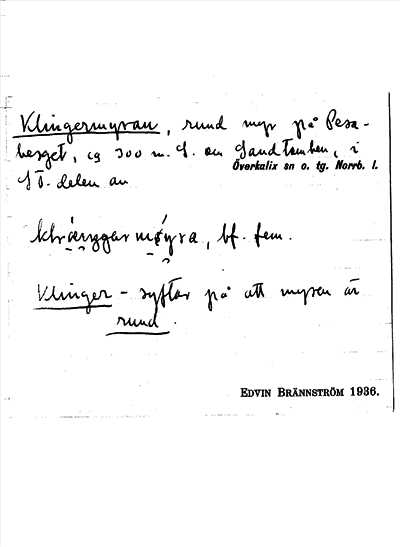 Klingermyran, rund myr på Pesa-
berget, ca 300 m. S. om Sandtomben, i
Överkalix sn o. tg. Norrb. l.
SÖ. delen av
myra, bf. fem.
Klinger - syftar på att myren är
rund.
EDVIN BRÄNNSTRÖM 1936.